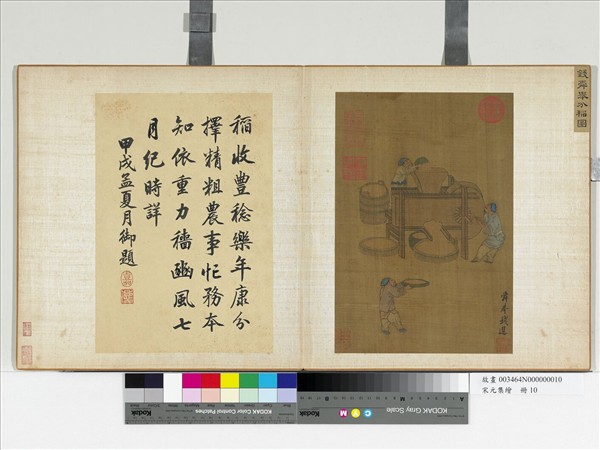 錢舜舉分稻圖
稻收豐稔樂年康分
擇精粗農事忙務本
知依重力穡豳風七
月紀時詳
甲戌孟夏月御題
舜舉錢選
故畫 003464N000000010
宋元集繪 冊 10
KODAK Color Control Patches
KODAK Gray Scale
C Y M